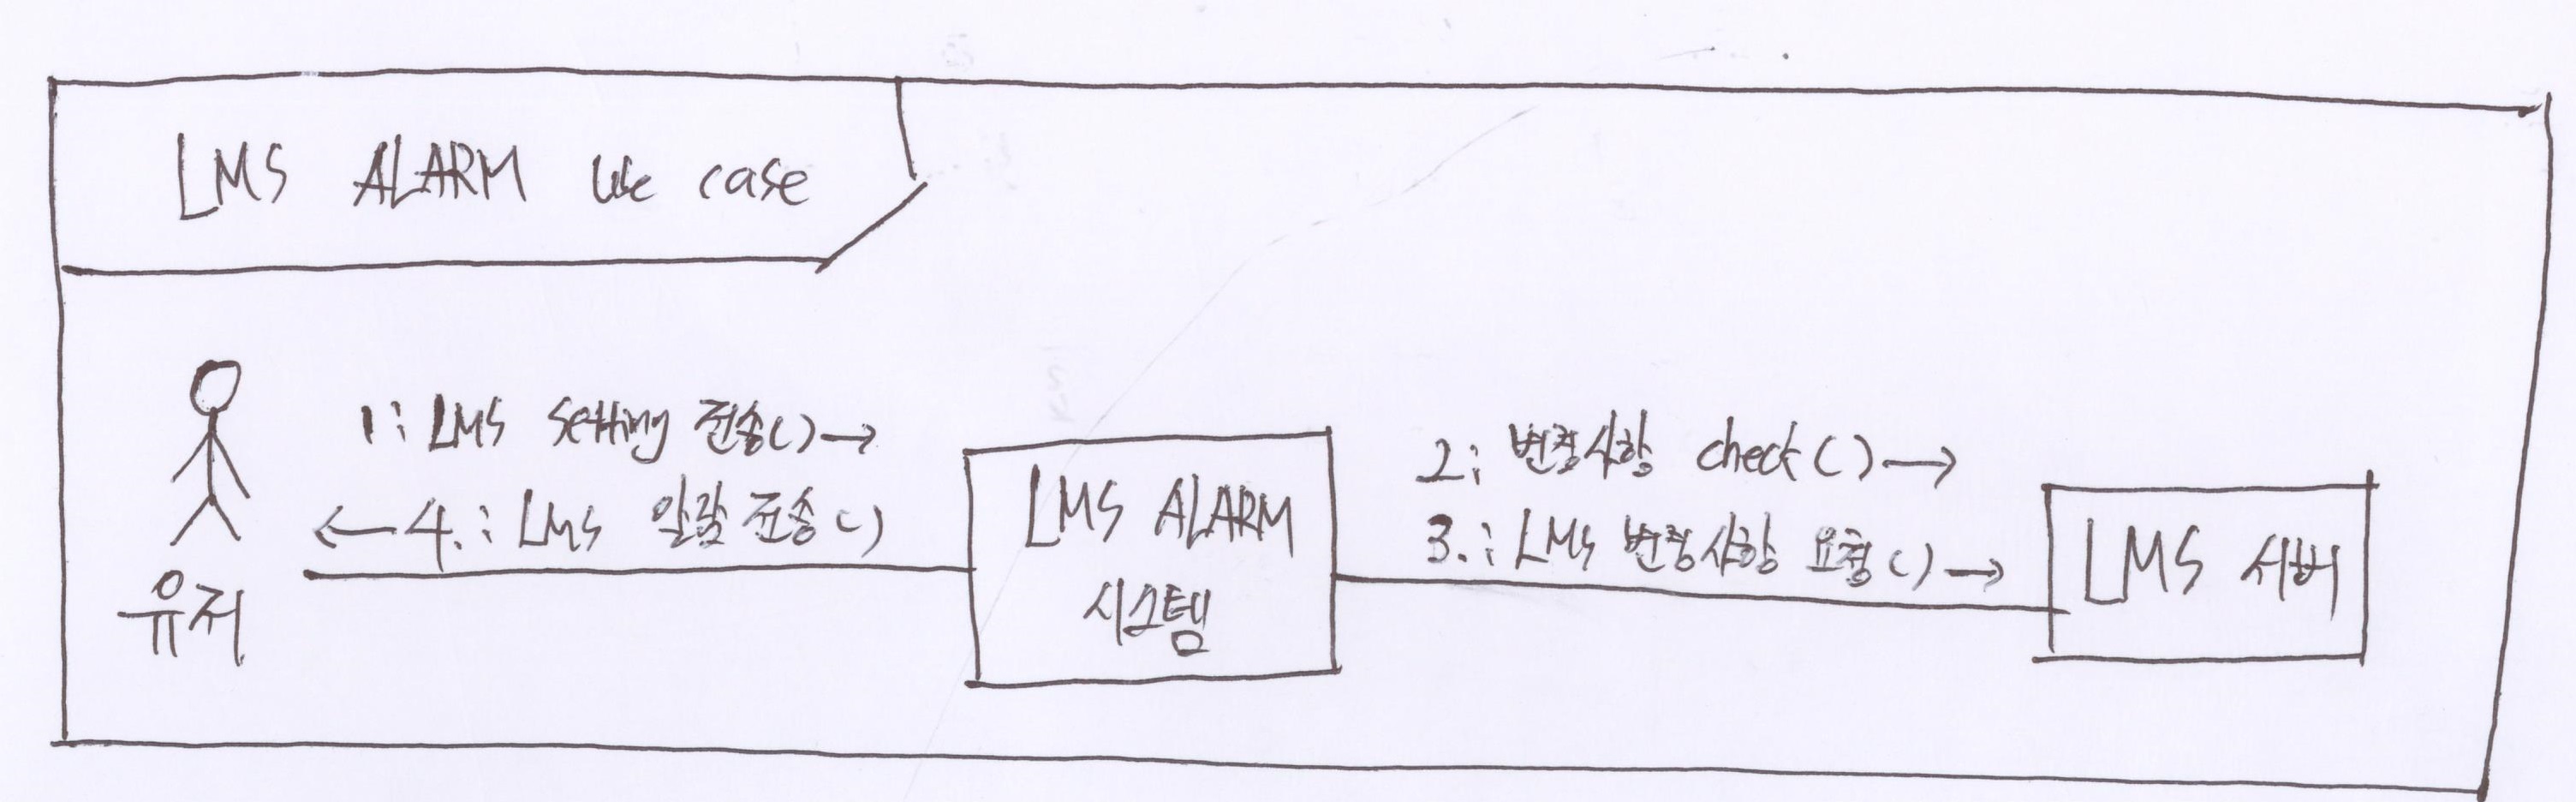 LMS ALARM Use case
1: LMS Setting 전송()→
←4.: LMS 알람 전송()
유저
LMS ALARM
시스템
2: 변경사항 check()→
3.: LMS 변경사항 요청()→
LMS 서버